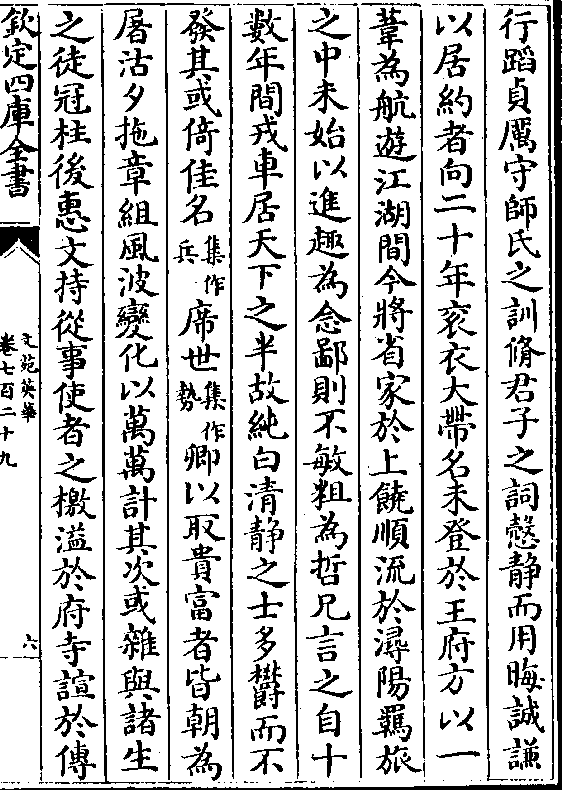 行蹈貞厲守師氏之訓脩君子之詞慤静而用晦誠謙
以居約者向二十年裒衣大帶名未登於王府方以一
葦為航遊江湖間今將省家於上饒順流於潯陽羈旅
之中未始以進趣為念鄙則不敏粗為哲兄言之自十
數年間戎車居天下之半故純白清静之士多欝而不
發其或倚佳名集作兵席世集作勢卿以取貴富者皆朝為
屠沽夕拖章組風波變化以萬萬計其次或雜與諸生
之徒冠柱後惠文持從事使者之檄溢於府寺諠於傳
欽定四庫全書
文苑英華
卷七百二十九
六